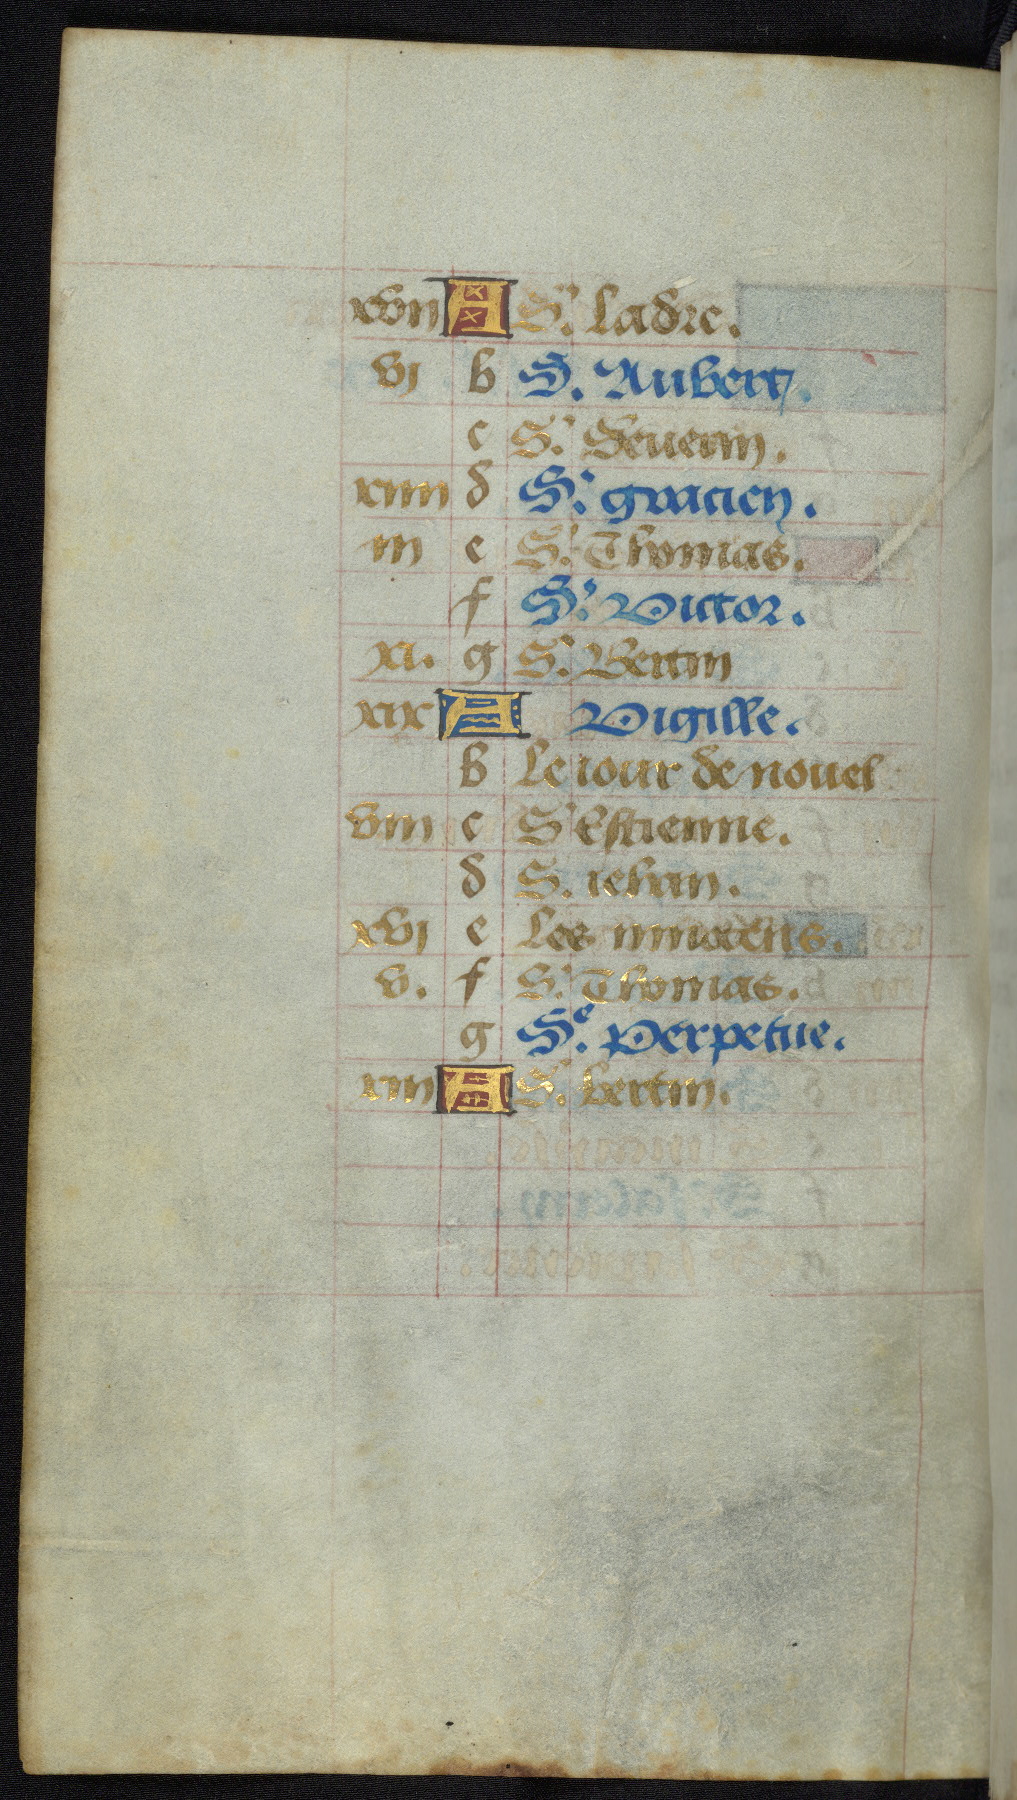 xvii A Sᵗ. Ladre.
vi b S. Aubert.
c Sᵗ. Seuerin.
xiiii d Sᵗ. gracien.
iii e Sᵗ. Thomas.
f Sᵗ. Victor.
xi. g Sᵗ. Bertin
xix A Vigille.
b Le iour de nouel
viii c Sᵗ Estienne.
d S. iehan.
xvi e Les innocens.
v. f Sᵗ. Thomas.
g Sᵉ. Perpetue.
xiii A S. bertin.